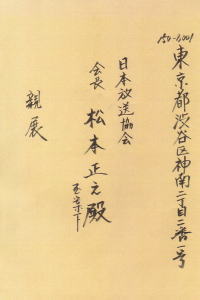 150-6001
東京都渋谷区神南二丁目二番一号
日本放送協会
会長 松本正之殿
玉案下
親展